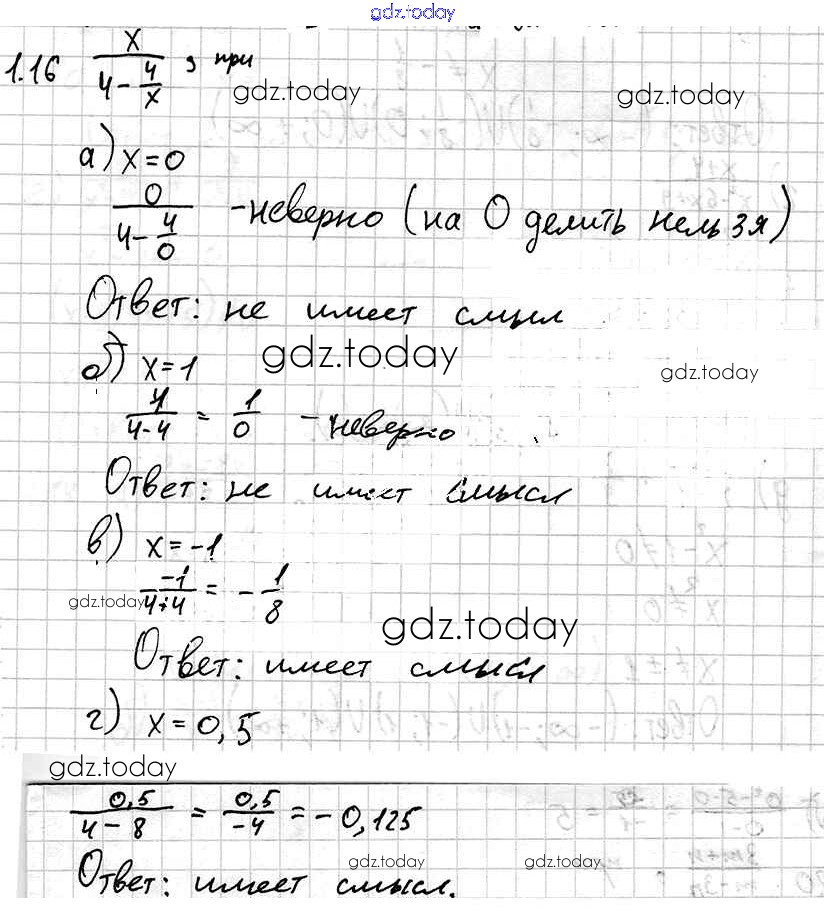 gdz.today
1.16 x / (4 - 4/x), при
gdz.today gdz.today
а) x = 0
0 / (4 - 4/0) - неверно (на 0 делить нельзя)
Ответ: не имеет смысл
gdz.today
б) x = 1
gdz.today
1 / (4-4) = 1/0 - неверно
Ответ: не имеет смысл
в) x = -1
-1 / (4+4) = - 1/8
gdz.today
gdz.today
Ответ: имеет смысл
г) x = 0,5
gdz.today
0,5 / (4 - 8) = 0,5 / -4 = - 0,125
gdz.today gdz.today
Ответ: имеет смысл.